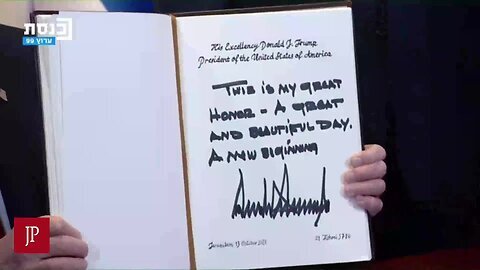 כנסת
ערוץ 99
His Excellency Donald J. Trump
President of the United States of America
THIS IS MY GREAT
HONOR - A GREAT
AND BEAUTIFUL DAY.
A NEW BIGINNING
Jerusalem, 13 October 2025
21 Tishrei 5786
JP